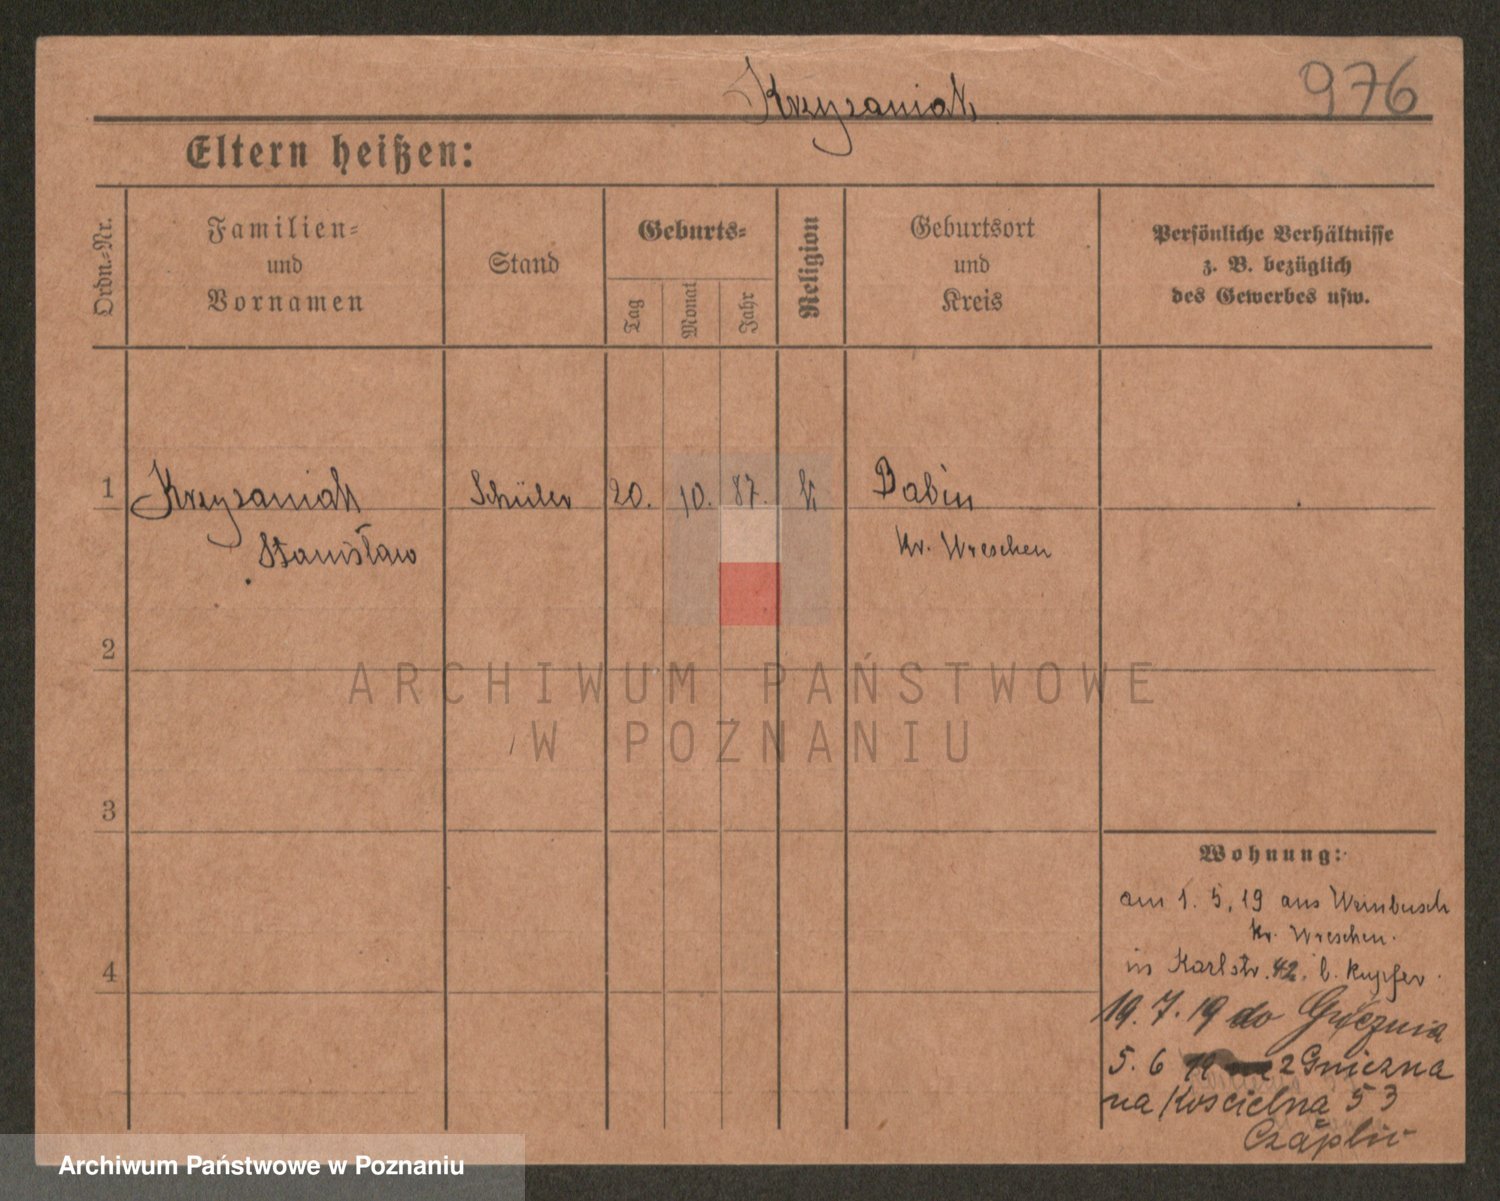 Krzyzaniak
976
Eltern heißen:
Ordn.-Nr.
Familien-
und
Vornamen
Stand
Geburts-
Tag
Monat
Jahr
Religion
Geburtsort
und
Kreis
Persönliche Verhältnisse
z. B. bezüglich
des Gewerbes usw.
1 Krzyzaniak Schüler 20. 10. 87. k Babin
Stanisław Kr. Wreschen
2
ARCHIWUM PAŃSTWOWE
W POZNANIU
3
Wohnung:
am 1. 5. 19 aus Weinbusch
kr. Wreschen.
in Karlstr. 42. b. Kupfer.
4
19. 7. 19 do
5. 6 19 z Gniezna
na Kościelna 53
Archiwum Państwowe w Poznaniu